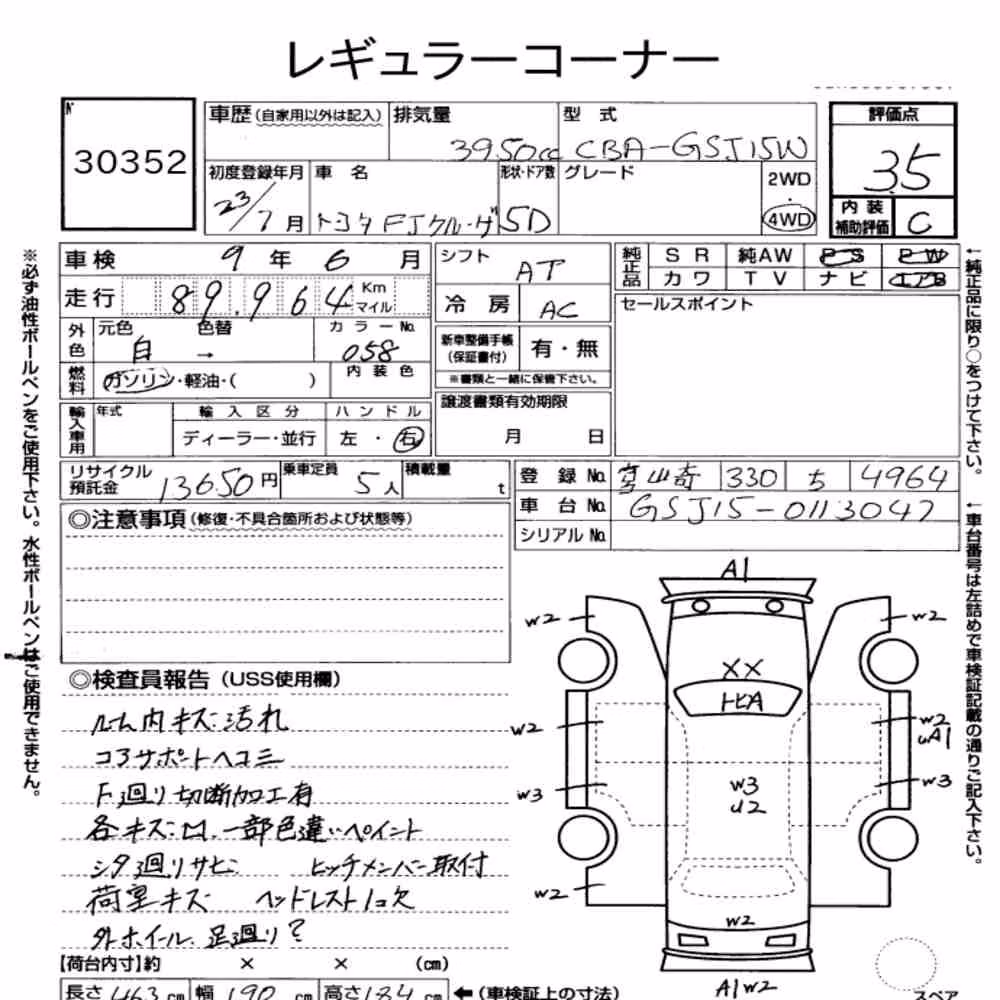 レギュラーコーナー
№ 30352
車歴 (自家用以外は記入) 排気量 3950cc 型式 CBA-GSJ15W
評価点 3.5
内装補助評価 C
初度登録年月 23/7月 車名 トヨタ FJクルーザ 形状・ドア数 5D グレード 2WD・4WD
車検 9年6月
走行 89,964 Km マイル
外色 元色 白 色替 → カラーNo. 058
燃料 ガソリン・軽油・( ) 内装色
輸入車用 年式 輸入区分 ディーラー・並行 ハンドル 左・右
シフト AT
冷房 AC
新車整備手帳 (保証書付) 有・無
※書類と一緒に保管下さい。
譲渡書類有効期限
月 日
純正品 SR 純AW PS PW
カワ TV ナビ エアB
セールスポイント
リサイクル預託金 13650円 乗車定員 5人 積載量 t
登録No. 宮崎 330 ち 4964
車台No. GSJ15-0113047
シリアルNo.
◎注意事項 (修復・不具合箇所および状態等)
◎検査員報告 (USS使用欄)
ルーム内キズ・汚れ
コアサポートヘコミ
F廻り切断加工有
各キズ・凹、一部色違いペイント
シタ廻りサビ ヒッチメンバー取付
荷室キズ ヘッドレスト1コ欠
外ホイール、足廻り?
【荷台内寸】約 × × (cm)
長さ 463 cm 幅 190 cm 高さ 184 cm ←(車検証上の寸法)
A1
W2 W2
XX
トビA
W2 W2
UA1
W3 W3
U2
W3
W2
W2
A1W2
スペア
※必ず油性ボールペンをご使用下さい。水性ボールペンはご使用できません。
←純正品に限り○をつけて下さい。
←車台番号は左詰めで車検証記載の通りご記入下さい。